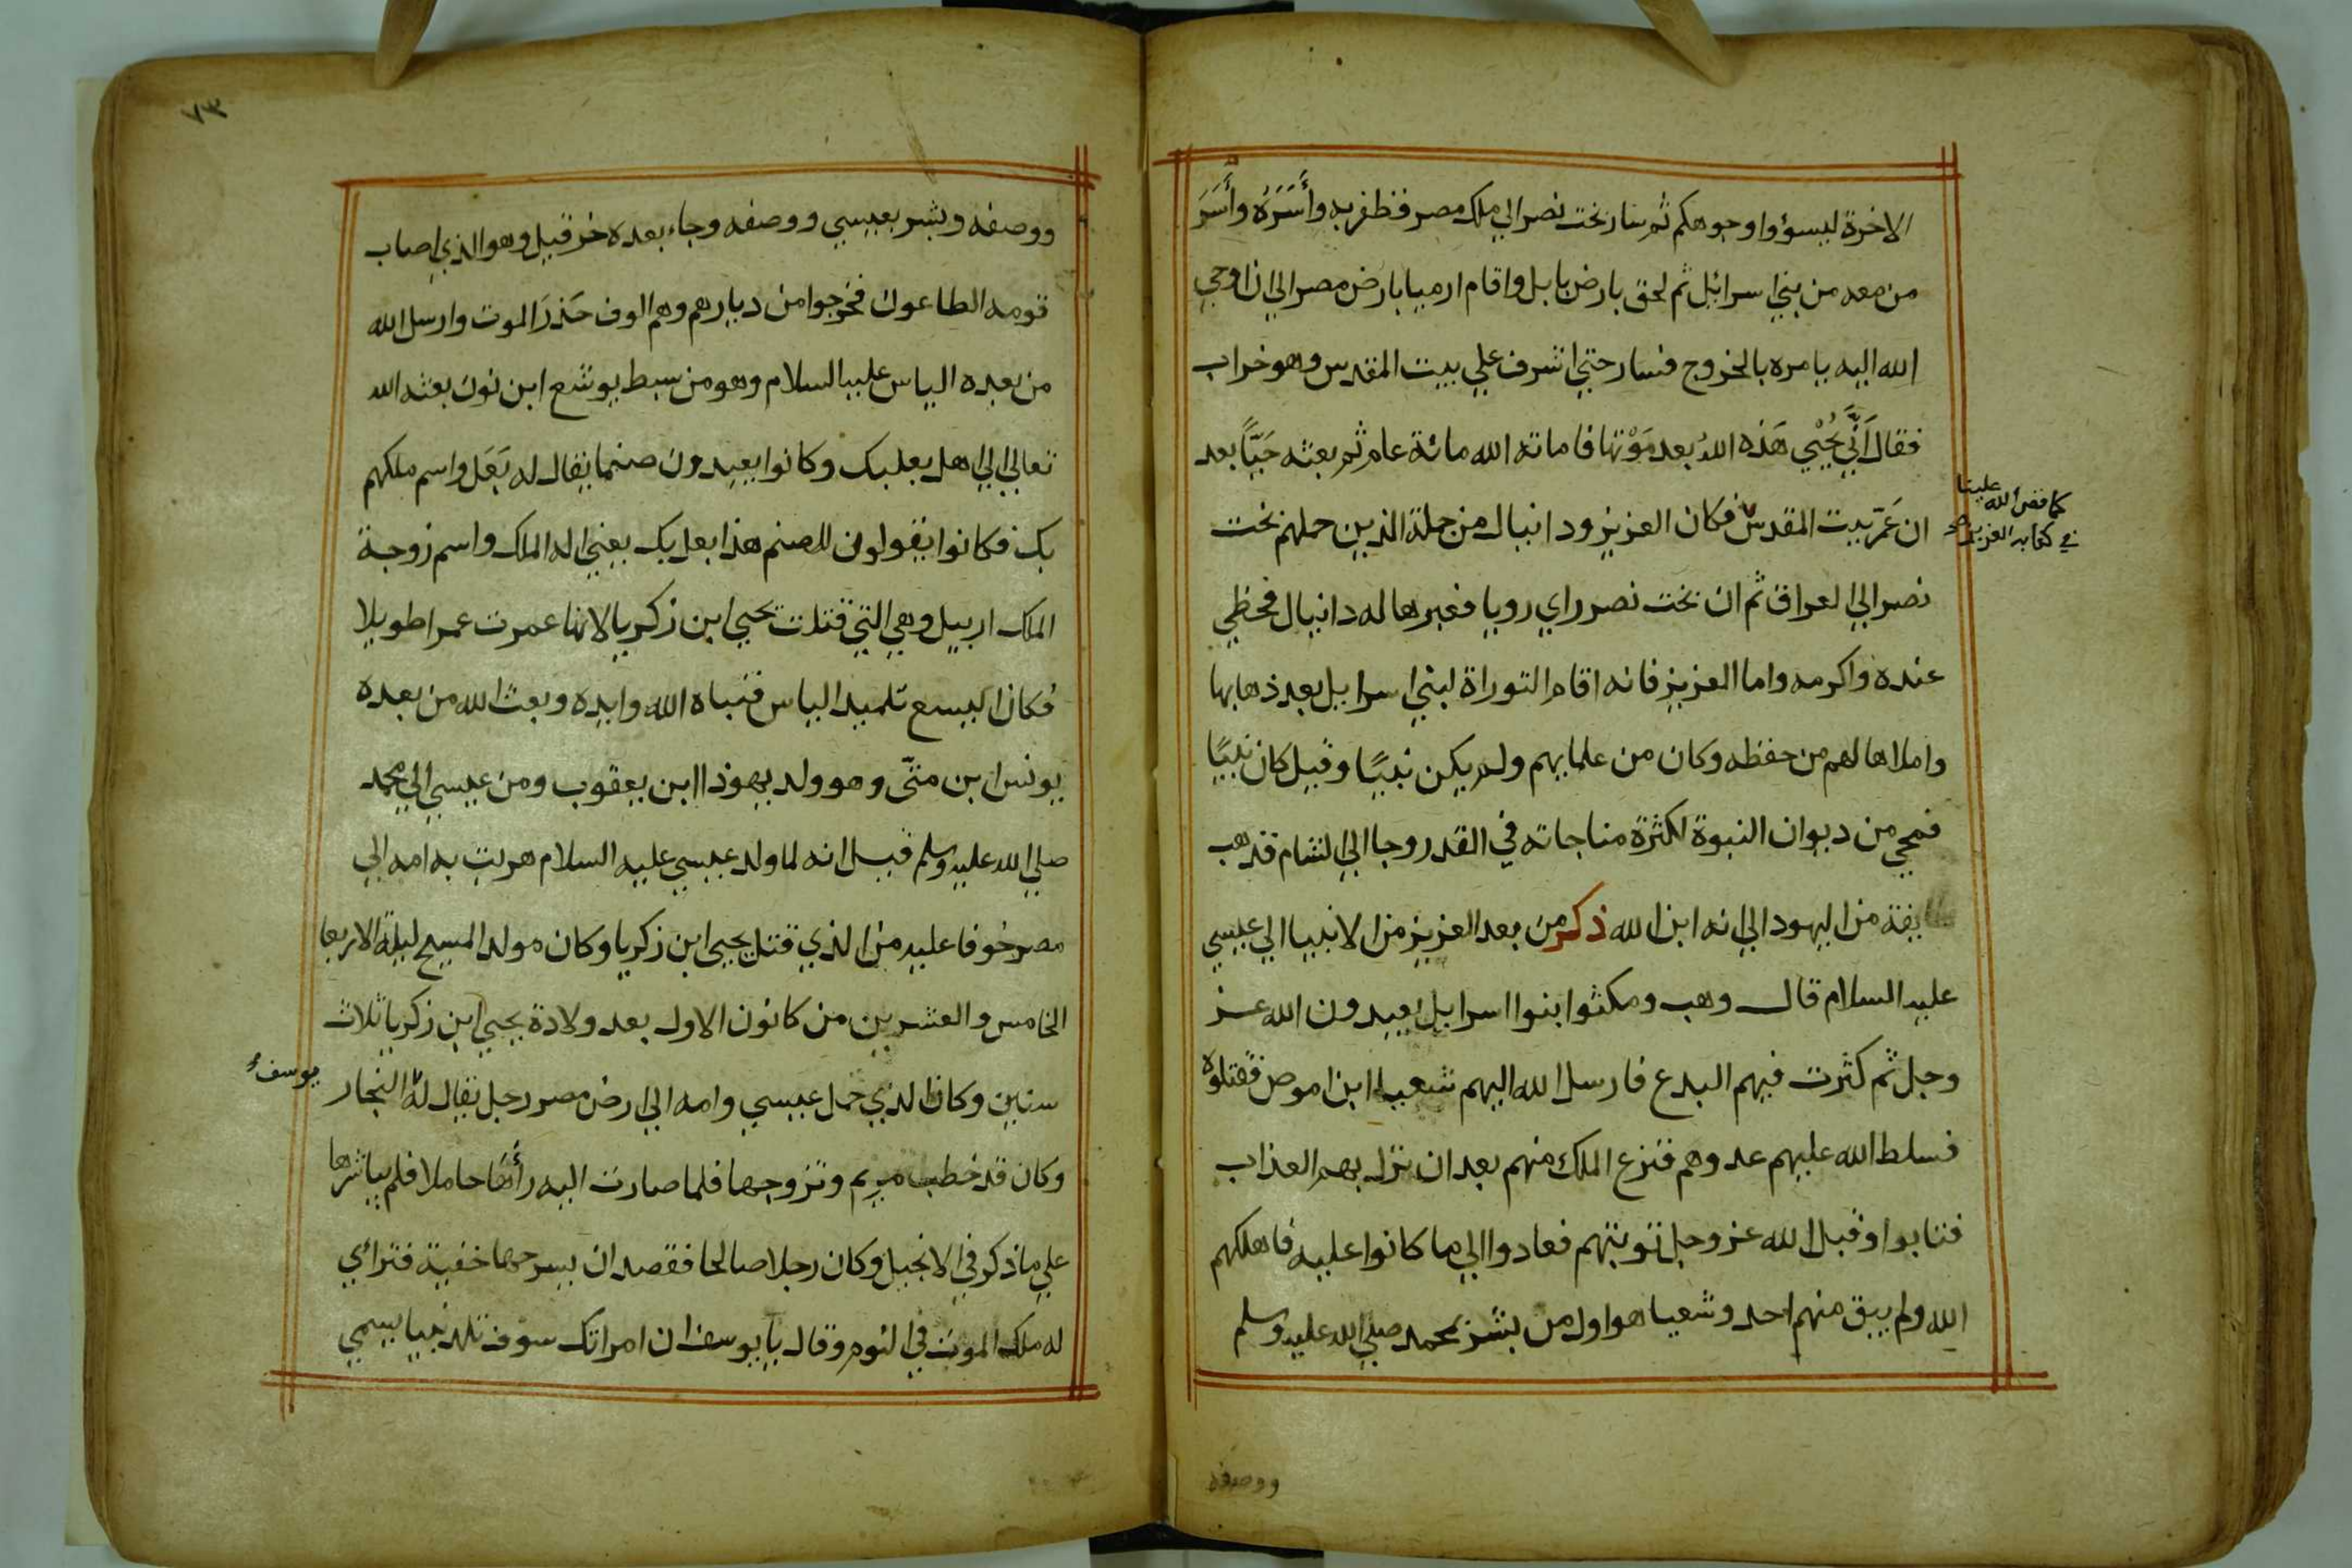 الاخرة ليسؤوا وجوهكم ثم سار بخت نصر الي ملك مصر فظفر به وأَسَرَهُ وأَسَرَ
من معه من بني اسرائل ثم لحق بارض بابل واقام ارميا بارض مصر الي ان اوحي
الله اليه يامره بالخروج فسار حتي اشرف علي بيت المقدس وهو خراب
فقال أَنَّي يُحْيي هَذه اللهُ بعد مَوْتها فاماته الله مائة عام ثم بعثه حَيًّا بعد
ان عَمَّر بيت المقدس فكان العزيز ودانيال من جملة الذين حملهم بخت
كما قص الله علينا
في كتابه العزيز صح
نصر الي العراق ثم ان بخت نصر راي رويا فعبرها له دانيال فحظي
عنده واكرمه واما العزيز فانه اقام التوراة لبني اسرايل بعد ذهابها
واملاها لهم من حفظه وكان من علمايهم ولم يكن نبيًا وقيل كان نبيًا
فمحي من ديوان النبوة لكثرة مناجاته في القدر وجا الي الشام فذهب
طايفة من اليهود الي انه ابن الله ذكر من بعد العزيز من الانبيا الي عيسي
عليه السلام قال وهب ومكثوا بنوا اسرايل يعبدون الله عز
وجل ثم كثرت فيهم البدع فارسل الله اليهم شعيا ابن اموص فقتلوه
فسلط الله عليهم عدوهم فنزع الملك منهم بعد ان نزل بهم العذاب
فتابوا وقبل الله عز وجل توبتهم فعادوا الي ما كانوا عليه فاهلكهم
الله ولم يبق منهم احد وشعيا هو اول من بشر بمحمد صلي الله عليه وسلم
ووصفه
٧٣
ووصفه وبشر بعيسي ووصفه وجاء بعده خزقيل وهو الذي اصاب
قومه الطاعون فخرجوا من ديارهم وهم الوف حَذَرَ الموت وارسل الله
من بعده الياس عليه السلام وهو من سبط يوشع ابن نون بعثه الله
تعالي الي اهل بعلبك وكانوا يعبدون صنما يقال له بَعَل واسم ملكهم
بك فكانوا يقولون للصنم هذا بعل بك يعني اله الملك واسم زوجة
الملك اربيل وهي التي قتلت يحيي ابن زكريا لانها عمرت عمرا طويلا
فكان اليسع تلميد الياس فنباه الله وايده وبعث الله من بعده
يونس ابن متّى وهو ولد يهوذا ابن يعقوب ومن عيسي الي محمد
صلي الله عليه وسلم قيل انه لما ولد عيسي عليه السلام هربت به امه الي
مصر خوفا عليه من الذي قتل يحيى ابن زكريا وكان مولد المسيح ليلة الاربعا
الخامس والعشرين من كانون الاول بعد ولادة يحيي ابن زكريا ثلاث
سنين وكان الذي حمل عيسي وامه الي ارض مصر رجل يقال له النجار
يوسف
وكان قد خطب مريم وتزوجها فلما صارت اليه رأها حاملا فلم يباشرها
علي ما ذكر في الانجيل وكان رجلا صالحا فقصد ان يسرحها خفية فترائي
له ملك الموت في النوم وقال يا يوسف ان امراتك سوف تلد نبيا يسمي